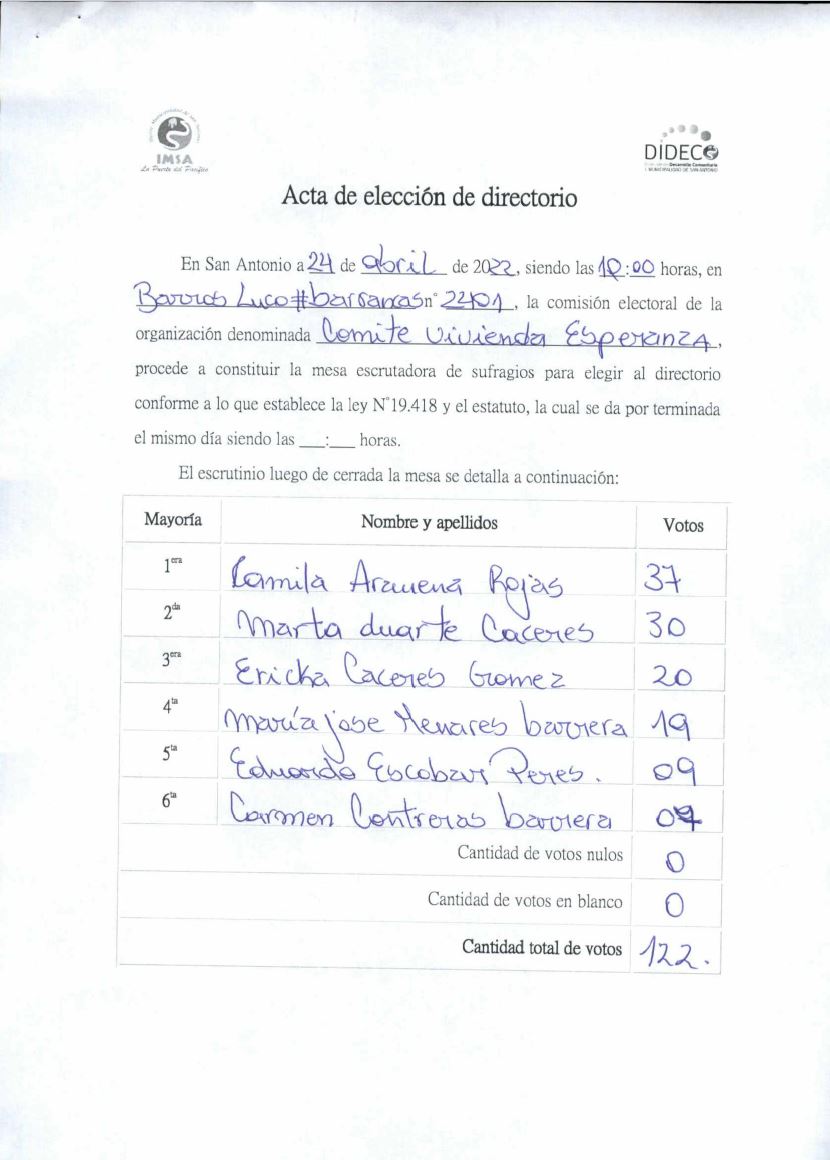 IMSA
La Puerta del Pacífico
DIDECO
Desarrollo Comunitario
I. MUNICIPALIDAD DE SAN ANTONIO
Acta de elección de directorio
En San Antonio a 24 de abril de 2022, siendo las 10:00 horas, en
Barros Luco#barrancas n° 2201, la comisión electoral de la
organización denominada Comite vivienda Esperanza,
procede a constituir la mesa escrutadora de sufragios para elegir al directorio
conforme a lo que establece la ley N°19.418 y el estatuto, la cual se da por terminada
el mismo día siendo las ___:___ horas.
El escrutinio luego de cerrada la mesa se detalla a continuación:
Mayoría Nombre y apellidos Votos
1era Camila Aravena Rojas 37
2da Marta duarte Caceres 30
3era Ericka Caceres Gromez 20
4ta María jose Henares barrera 19
5ta Eduardo Escobar Peres. 09
6ta Carmen Contreras barrera 07
Cantidad de votos nulos 0
Cantidad de votos en blanco 0
Cantidad total de votos 122.